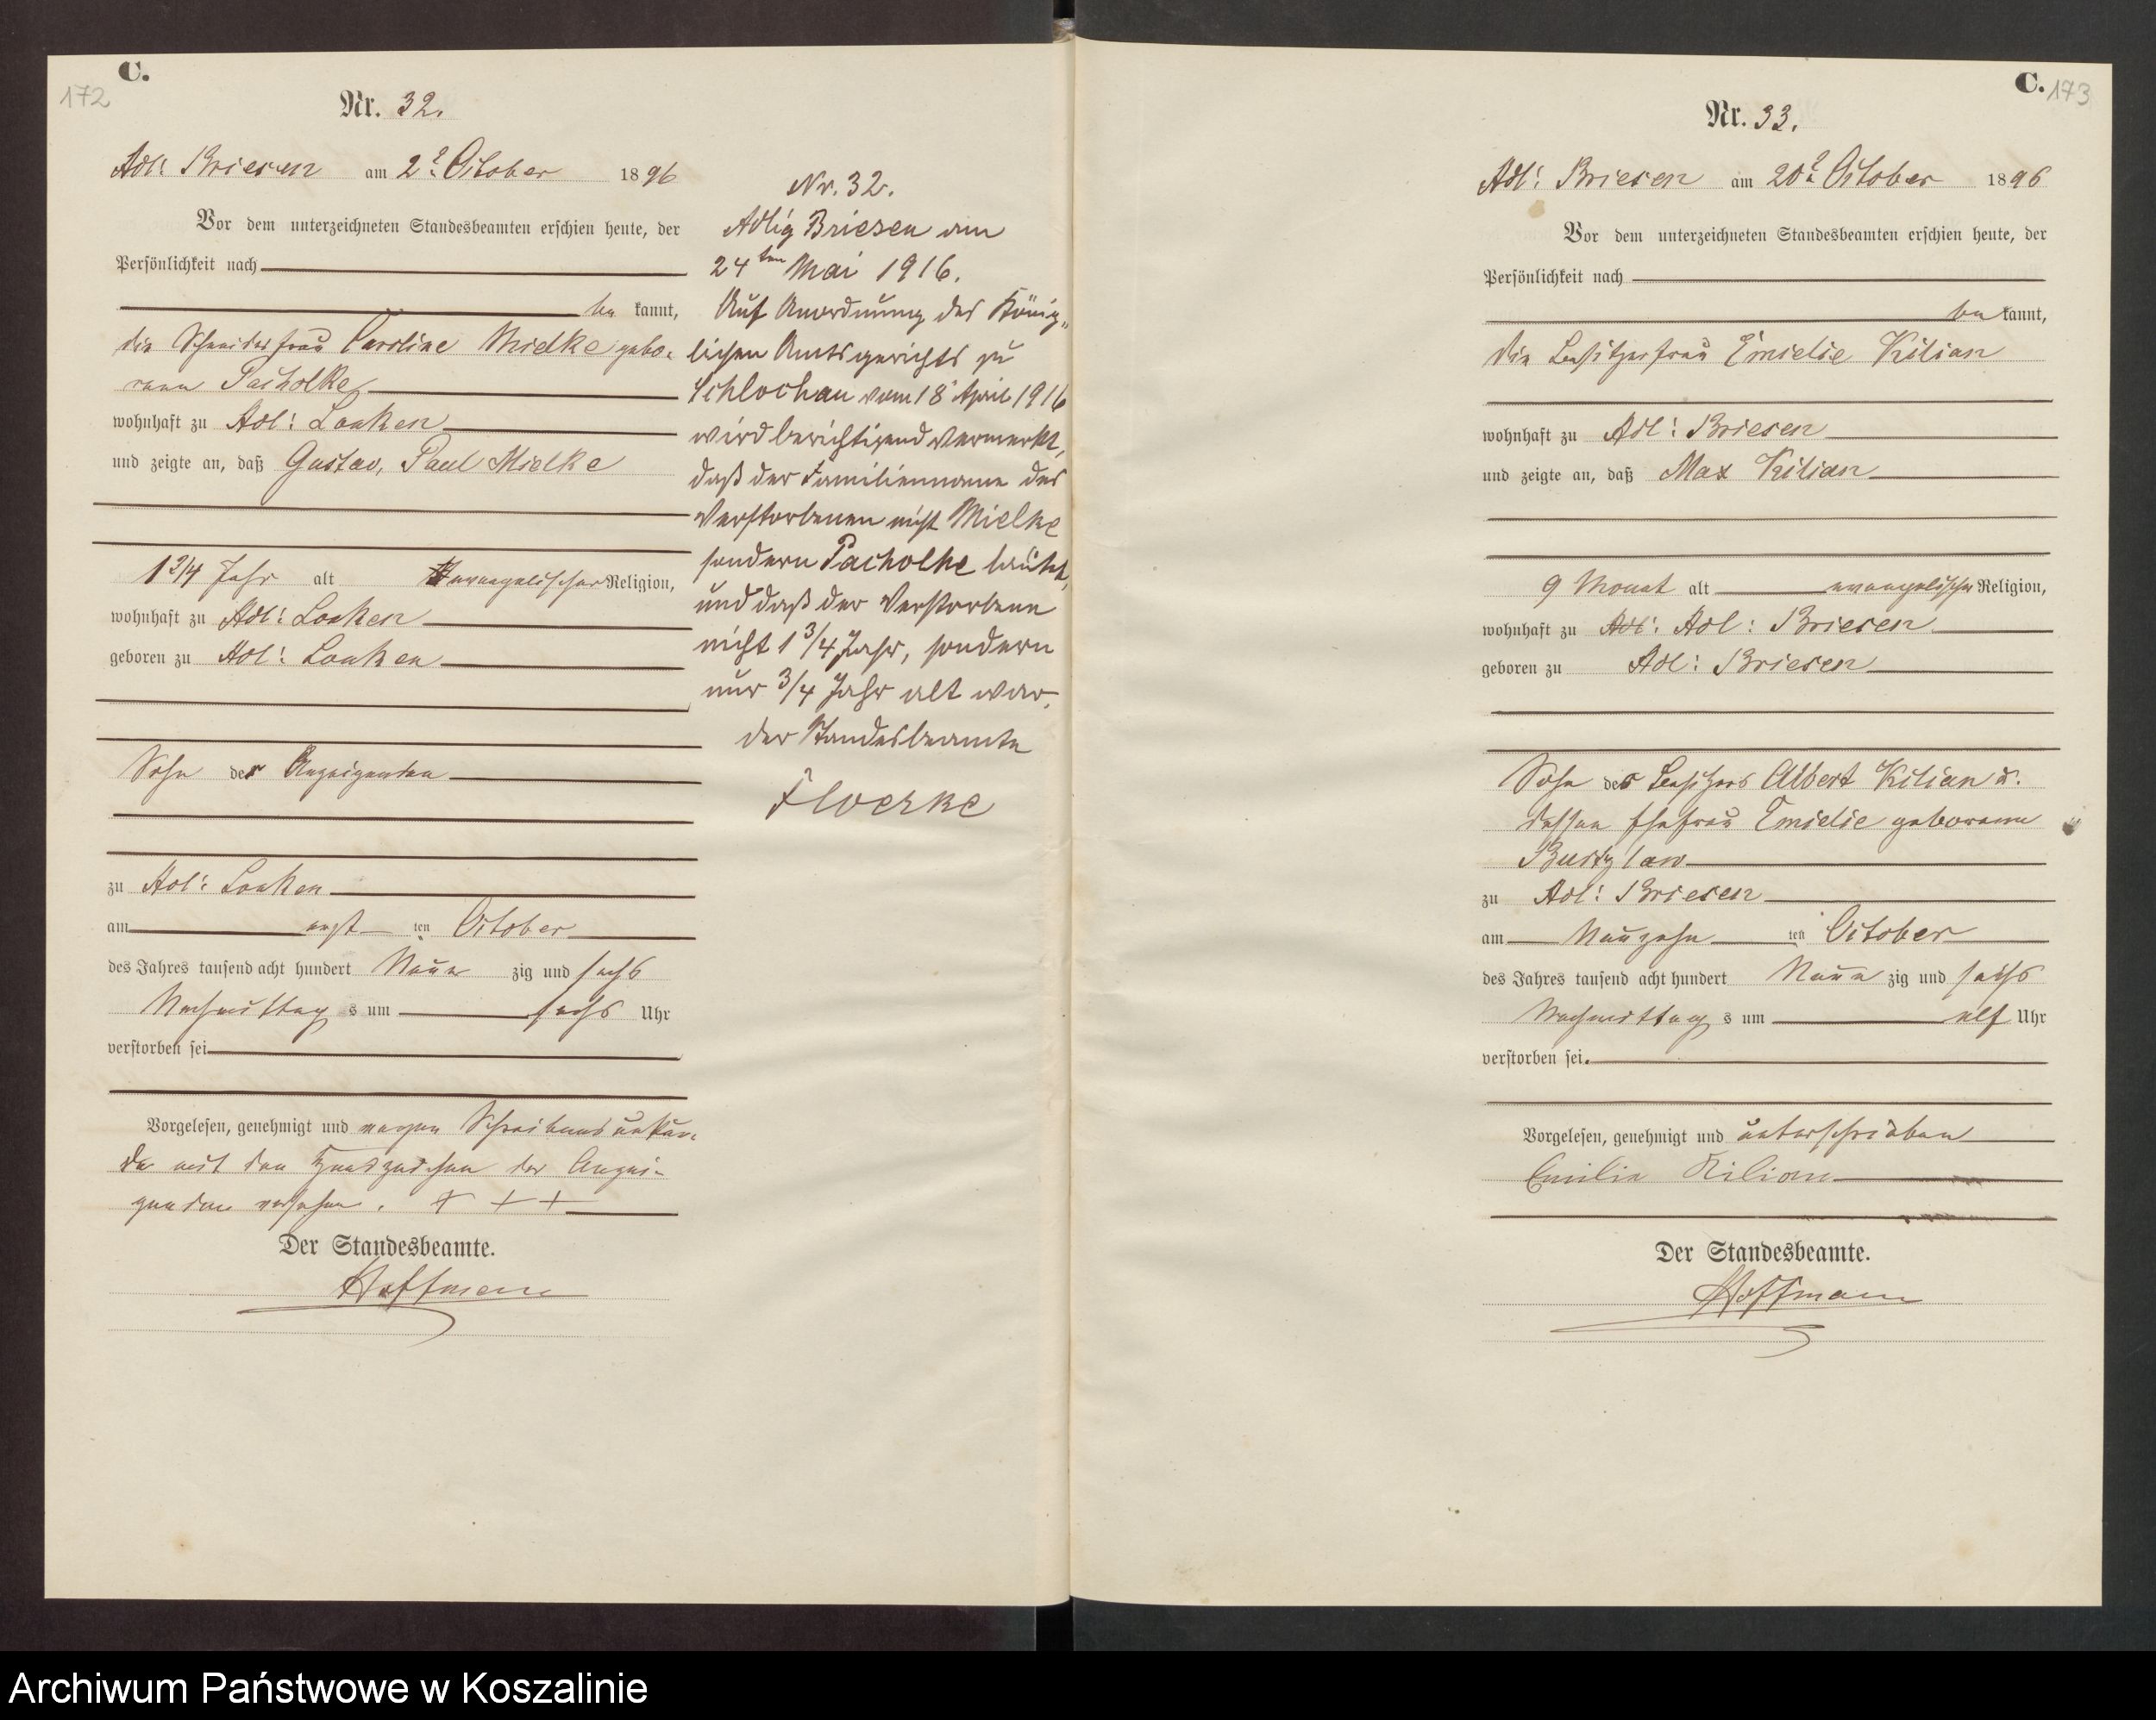 C.
172
Nr. 32.
Adl: Briesen am 2t October 1896
Vor dem unterzeichneten Standesbeamten erschien heute, der
Persönlichkeit nach
be kannt,
die Schneiderfrau Caroline Mielke gebo-
rene Pacholke
wohnhaft zu Adl: Looken
und zeigte an, daß Gustav, Paul Mielke
1 3/4 Jahr alt evangelischer Religion,
wohnhaft zu Adl: Looken
geboren zu Adl: Looken
Sohn der Anzeigenden
zu Adl: Looken
am erst ten October
des Jahres tausend acht hundert Neun zig und sechs
Nachmittag s um sechs Uhr
verstorben sei
Vorgelesen, genehmigt und wegen Schreibensunkun-
de mit den Handzeichen der Anzei-
genden versehen. + + +
Der Standesbeamte.
Hoffmann
Nr. 32.
Adlig Briesen am
24ten Mai 1916.
Auf Anordnung des König-
lichen Amtsgerichts zu
Schlochau vom 18 April 1916
wird berichtigend vermerkt,
daß der Familienname des
Verstorbenen nicht Mielke
sondern Pacholke lautet,
und daß der Verstorbene
nicht 1 3/4 Jahr, sondern
nur 3/4 Jahr alt war.
der Standesbeamte
Floerke
C.
173
Nr. 33.
Adl: Briesen am 20t October 1896
Vor dem unterzeichneten Standesbeamten erschien heute, der
Persönlichkeit nach
be kannt,
die Besitzerfrau Emielie Kilian
wohnhaft zu Adl: Briesen
und zeigte an, daß Max Kilian
9 Monat alt evangelischer Religion,
wohnhaft zu Adl: Adl: Briesen
geboren zu Adl: Briesen
Sohn des Besitzers Albert Kilian u.
dessen Ehefrau Emielie geborene
zu Adl: Briesen
am Neunzehn ten October
des Jahres tausend acht hundert Neun zig und sechs
Nachmittag s um elf Uhr
verstorben sei.
Vorgelesen, genehmigt und unterschrieben
Emilie Kilian
Der Standesbeamte.
Hoffmann
Archiwum Państwowe w Koszalinie